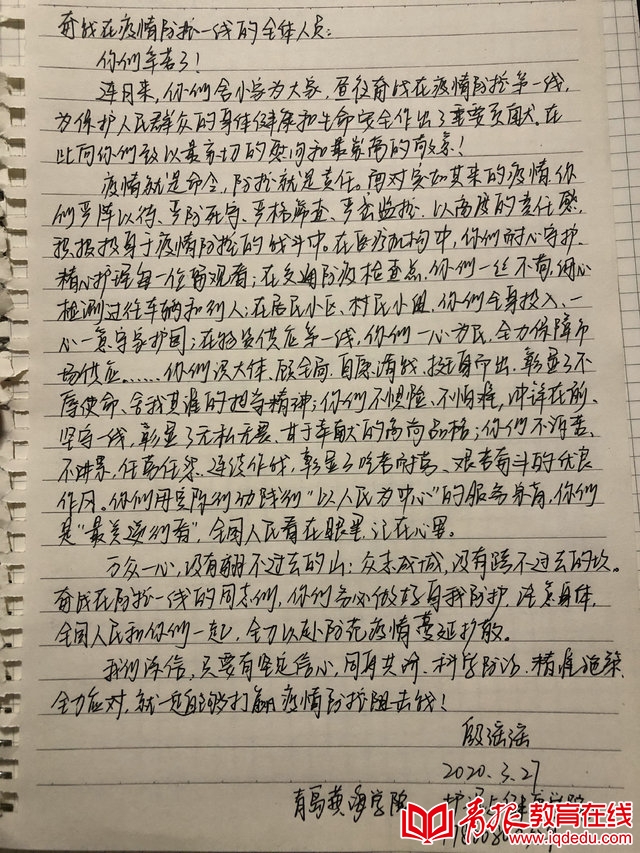 奋战在疫情防控一线的全体人员：
你们辛苦了！
连月来，你们舍小家为大家，昼夜奋战在疫情防控第一线，
为保护人民群众的身体健康和生命安全作出了重要贡献。在
此向你们致以最亲切的慰问和最崇高的敬意！
疫情就是命令，防控就是责任。面对突如其来的疫情，你
们严阵以待、严防死守、严格筛查、严密监控，以高度的责任感，
积极投身于疫情防控的战斗中。在医疗机构中，你们耐心守护、
精心护理每一位留观者；在交通防疫检查点，你们一丝不苟，细心
检测过往车辆和行人；在居民小区、村民小组，你们全身投入、一
心一意守家护园；在物资供应第一线，你们一心为民，全力保障市
场供应。……你们识大体、顾全局、自愿请战、挺身而出，彰显了不
辱使命、舍我其谁的担当精神；你们不惧险、不怕难，冲锋在前、
坚守一线，彰显了无私无畏、甘于奉献的高尚品格；你们不诉苦、
不讲累，任劳任怨、连续作战，彰显了吃苦耐劳、艰苦奋斗的优良
作风。你们用实际行动践行“以人民为中心”的服务宗旨，你们
是“最美逆行者”，全国人民看在眼里，记在心里。
万众一心，没有翻不过去的山；众志成城，没有跨不过去的坎。
奋战在防控一线的同志们，你们务必做好自我防护，注意身体，
全国人民和你们一起，全力以赴防范疫情蔓延扩散。
我们深信，只要有坚定信心、同舟共济、科学防治、精准施策、
全力应对，就一定能够打赢疫情防控阻击战！
殷瑶瑶
2020.3.27
青岛黄海学院 护理与健康学院
青报教育在线
www.iqdedu.com